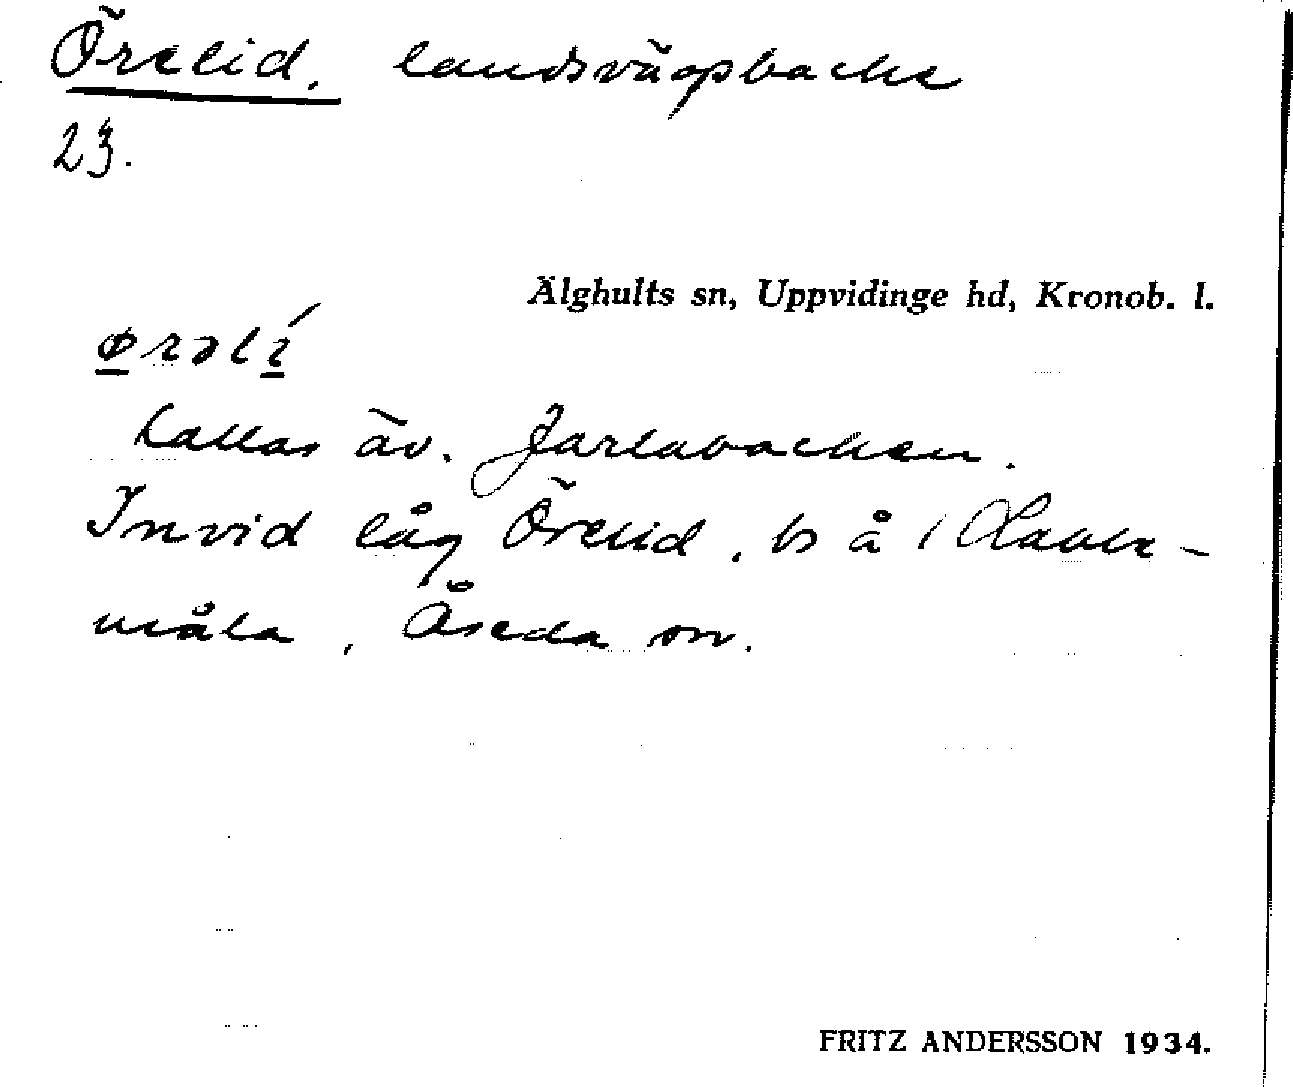 Örelid, landsvägsbacke
23.
Älghults sn, Uppvidinge hd, Kronob. l.
ørəlí
kallas äv. Jarlabacken.
Invid låg Örelid, bs å
måla, Åseda sn.
FRITZ ANDERSSON 1934.